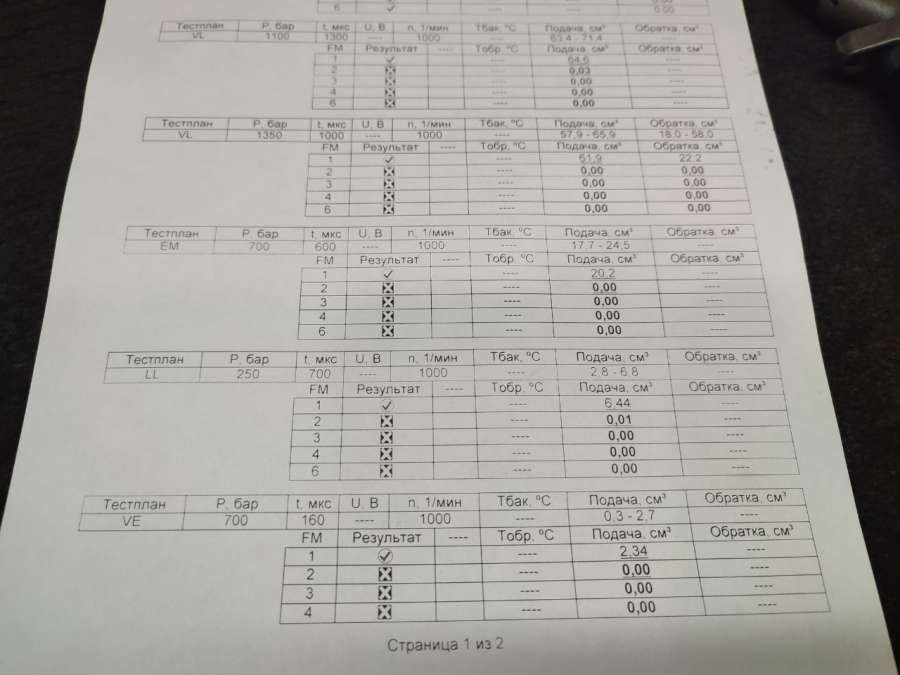 6 ---- ---- 0.00
Тестплан P, бар t, мкс U, В n, 1/мин Tбак, °C Подача, см³ Обратка, см³
VL 1100 1300 ---- 1000 ---- 63.4 - 71.4 ----
FM Результат ---- Тобр, °C Подача, см³ Обратка, см³
1 ---- 64,6 ----
2 ---- 0,03 ----
3 ---- 0,00 ----
4 ---- 0,00 ----
6 ---- 0,00 ----
Тестплан P, бар t, мкс U, В n, 1/мин Tбак, °C Подача, см³ Обратка, см³
VL 1350 1000 ---- 1000 ---- 57,9 - 65,9 18.0 - 58.0
FM Результат ---- Тобр, °C Подача, см³ Обратка, см³
1 ---- 61,9 22,2
2 ---- 0,00 0,00
3 ---- 0,00 0,00
4 ---- 0,00 0,00
6 ---- 0,00 0,00
Тестплан P, бар t, мкс U, В n, 1/мин Tбак, °C Подача, см³ Обратка, см³
EM 700 600 ---- 1000 ---- 17.7 - 24,5 ----
FM Результат ---- Тобр, °C Подача, см³ Обратка, см³
1 ---- 20,2 ----
2 ---- 0,00 ----
3 ---- 0,00 ----
4 ---- 0,00 ----
6 ---- 0,00 ----
Тестплан P, бар t, мкс U, В n, 1/мин Tбак, °C Подача, см³ Обратка, см³
LL 250 700 ---- 1000 ---- 2.8 - 6,8 ----
FM Результат ---- Тобр, °C Подача, см³ Обратка, см³
1 ---- 6,44 ----
2 ---- 0,01 ----
3 ---- 0,00 ----
4 ---- 0,00 ----
6 ---- 0,00 ----
Тестплан P, бар t, мкс U, В n, 1/мин Tбак, °C Подача, см³ Обратка, см³
VE 700 160 ---- 1000 ---- 0,3 - 2,7 ----
FM Результат ---- Тобр, °C Подача, см³ Обратка, см³
1 ---- 2,34 ----
2 ---- 0,00 ----
3 ---- 0,00 ----
4 ---- 0,00 ----
Страница 1 из 2